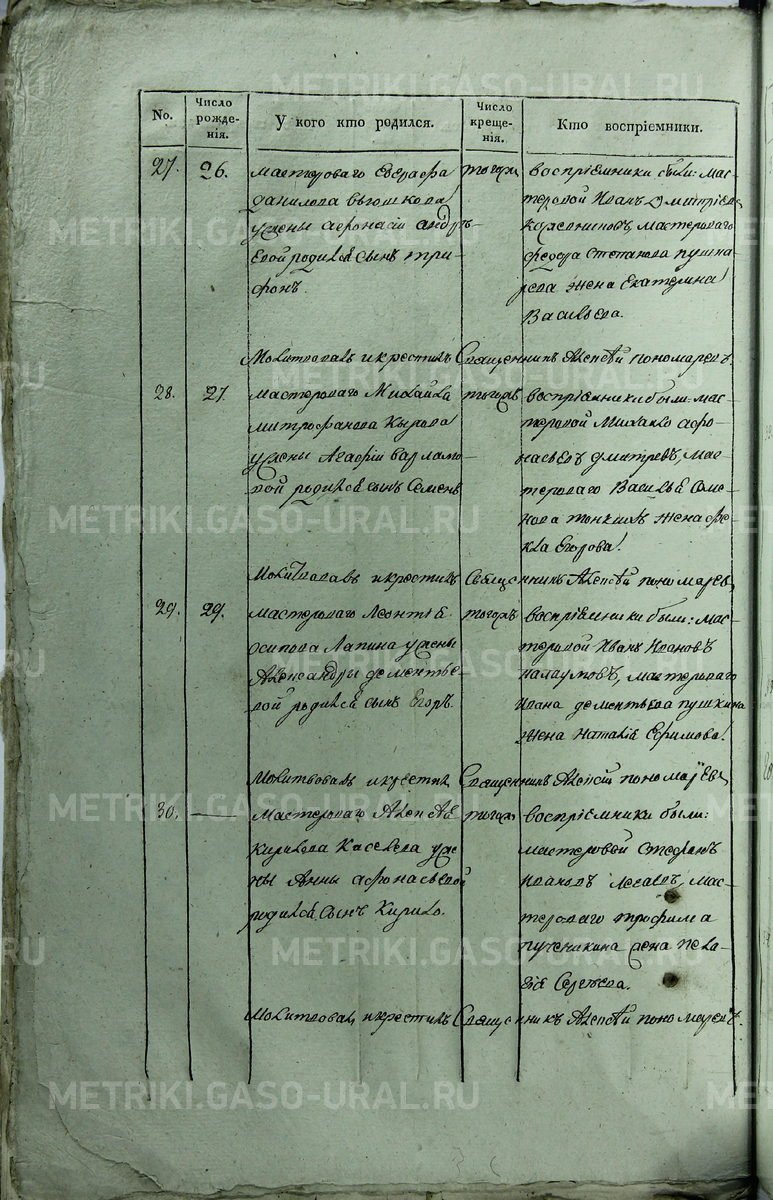 METRIKI.GASO-URAL.RU
No.
Число рожде-нія.
У кого кто родился.
Число креще-нія.
Кто воспріемники.
27.
26.
мастероваго Евграфа
данилова вьюшкова
ужены афонасіи андрѣ-
евой родился сынъ три-
фонъ.
тогожъ
воспріемники были: мас-
теровой Иванъ Дмитріевъ
мастероваго
федора Степанова пушка-
рева жена Екатерина
Васильева.
Молитвовалъ икрестилъ Священникъ Алексѣй пономаревъ.
28.
27.
мастероваго Михайла
митрофанова Кырова
ужены Агафіи варламо-
вой родился сынъ Семенъ
тогожъ
воспріемники были: мас-
теровой Михайло афо-
насьевъ дмитревъ, мас-
тероваго Василья Семе-
нова жена
Егорова.
Молитвовалъ икрестилъ Священникъ Алексѣй пономаревъ
29.
29.
мастероваго Леонтія
осипова Лапина ужены
Александры дементье-
вой родился сынъ Егоръ.
тогожъ
воспріемники были: мас-
теровой Иванъ Ивановъ
мастероваго
Ивана дементьева пушкина
жена наталія Ефимова.
Молитвовалъ икрестилъ Священникъ Алексѣй пономаревъ
30.
—
мастероваго Алексѣя
Кирилова Касьева уже-
ны Анны афонасьевой
родился Сынъ Кирило.
тогожъ
воспріемники были:
мастеровой Стефанъ
Ивановъ мас-
тероваго трофима
пученикина жена пела-
гія Сергѣева.
Молитвовалъ икрестилъ Священникъ Алексѣй пономаревъ.